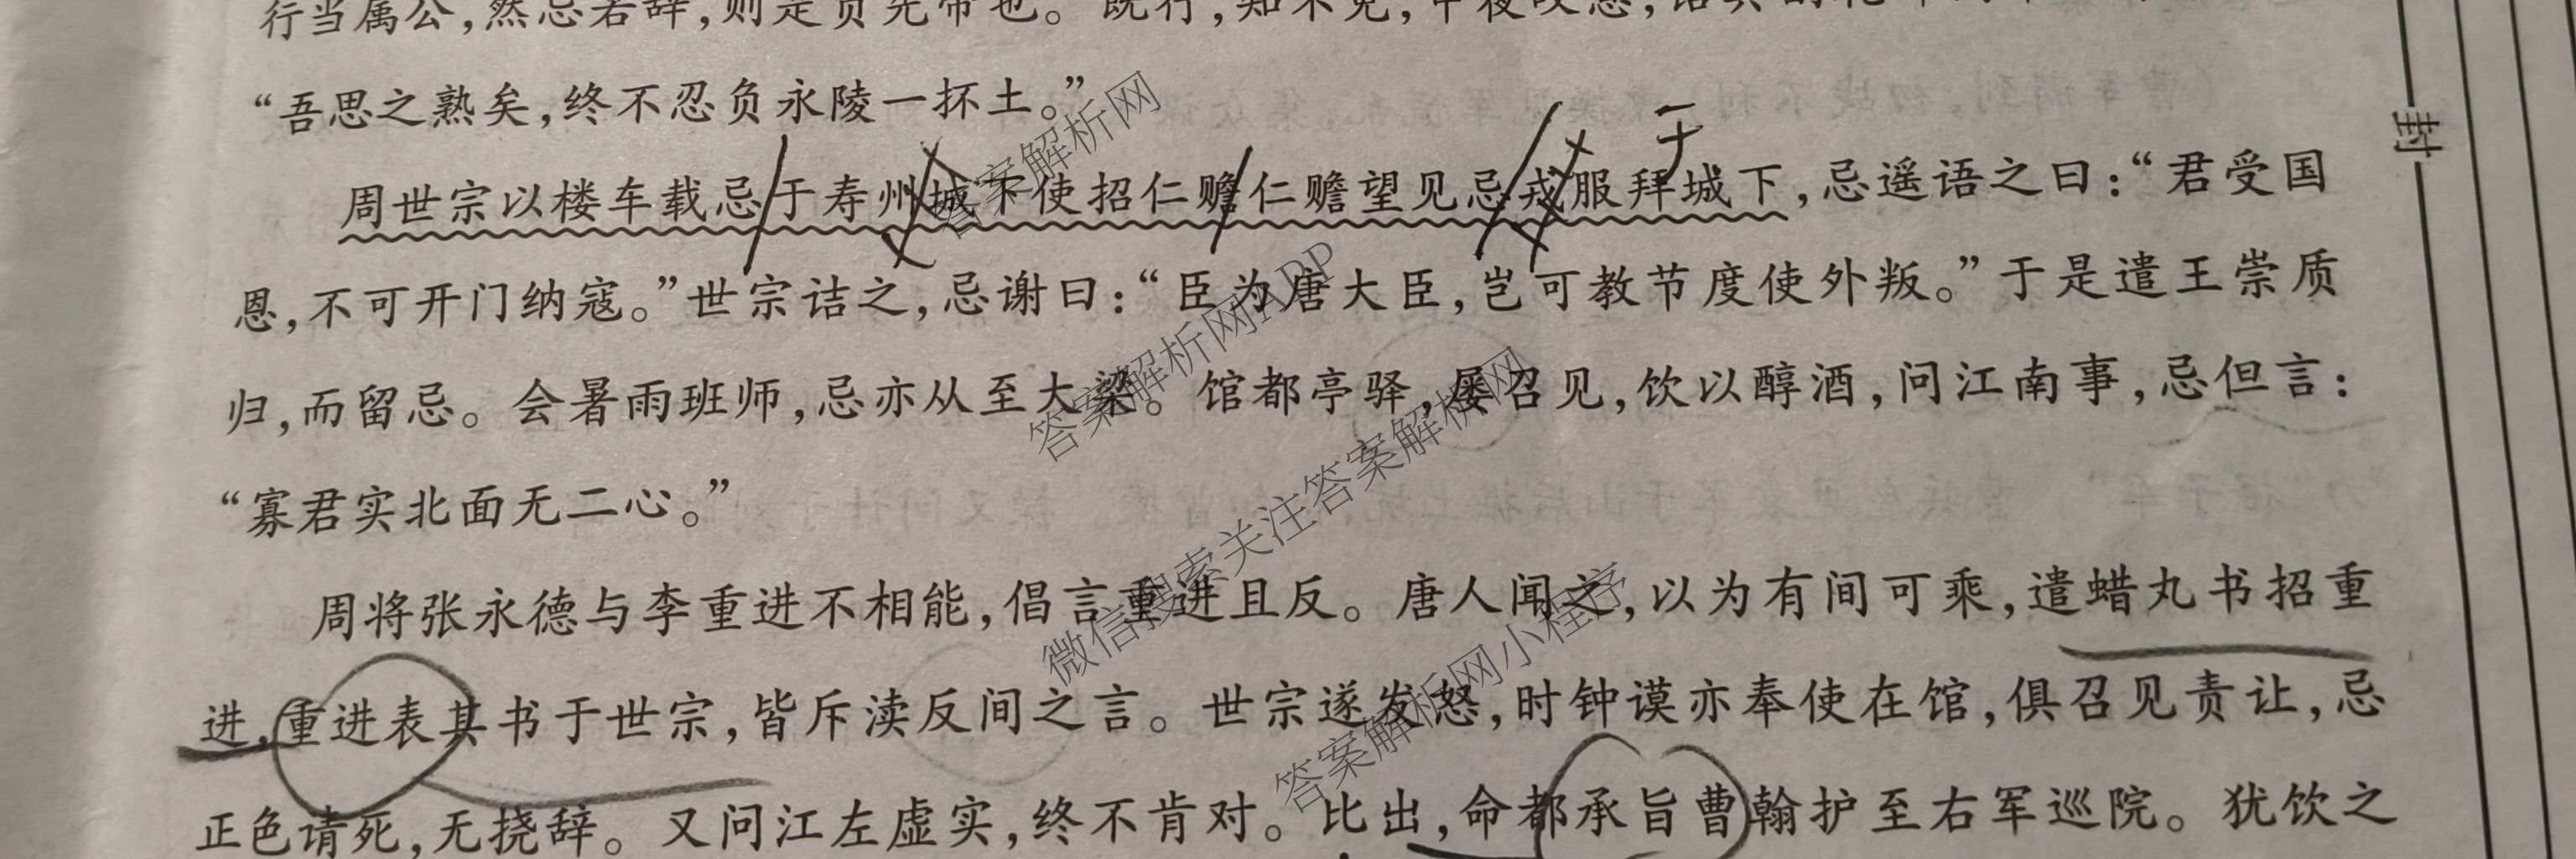 行当属公,然忌若辞,则是负先帝也。”既行,知不免,中夜叹息,语其
“吾思之熟矣,终不忍负永陵一抔土。”
于
周世宗以楼车载忌于寿州城下使招仁赡仁赡望见忌戎服拜城下,忌遥语之曰:“君受国
恩,不可开门纳寇。”世宗诘之,忌谢曰:“臣为唐大臣,岂可教节度使外叛。”于是遣王崇质
归,而留忌。会暑雨班师,忌亦从至大梁。馆都亭驿,屡召见,饮以醇酒,问江南事,忌但言:
“寡君实北面无二心。”
周将张永德与李重进不相能,倡言重进且反。唐人闻之,以为有间可乘,遣蜡丸书招重
进,重进表其书于世宗,皆斥渎反间之言。世宗遂发怒,时钟谟亦奉使在馆,俱召见责让,忌
正色请死,无挠辞。又问江左虚实,终不肯对。比出,命都承旨曹翰护至右军巡院。犹饮之
封
答案解析网
答案解析网APP
微信搜索关注答案解析网
答案解析网小程序